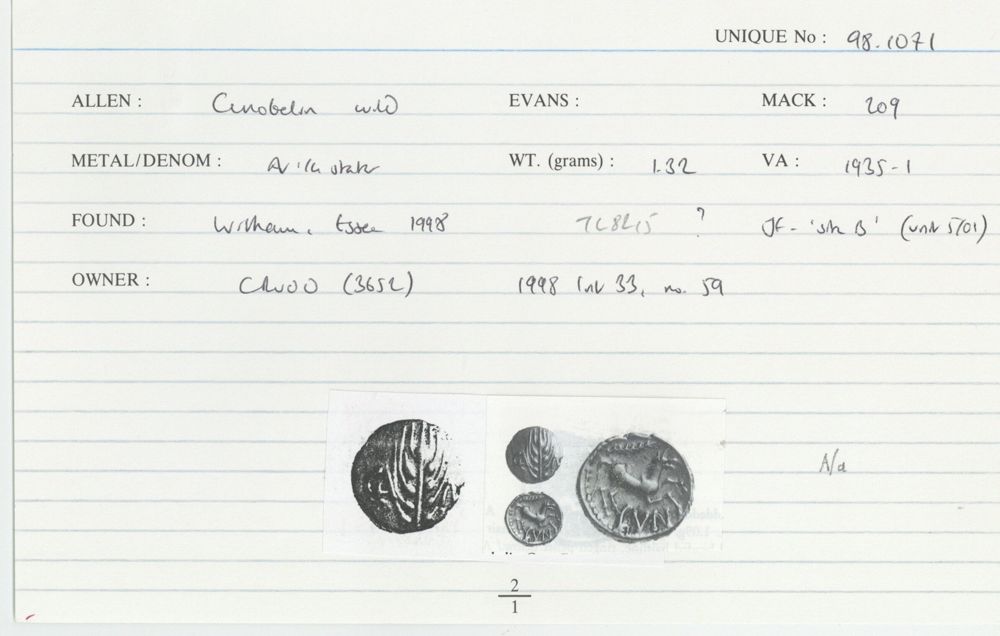 UNIQUE No : 98.1071
ALLEN : Cunobelin wild EVANS : MACK : 209
METAL/DENOM : AV 1/4 stater WT. (grams) : 1.32 VA : 1935-1
FOUND : Witham, Essex 1998 TL8215 ? JF - 'site B' (unit 5/01)
OWNER : (3652) 1998 Inv 33, no. 59
CVN
CVN
A/a
2
1